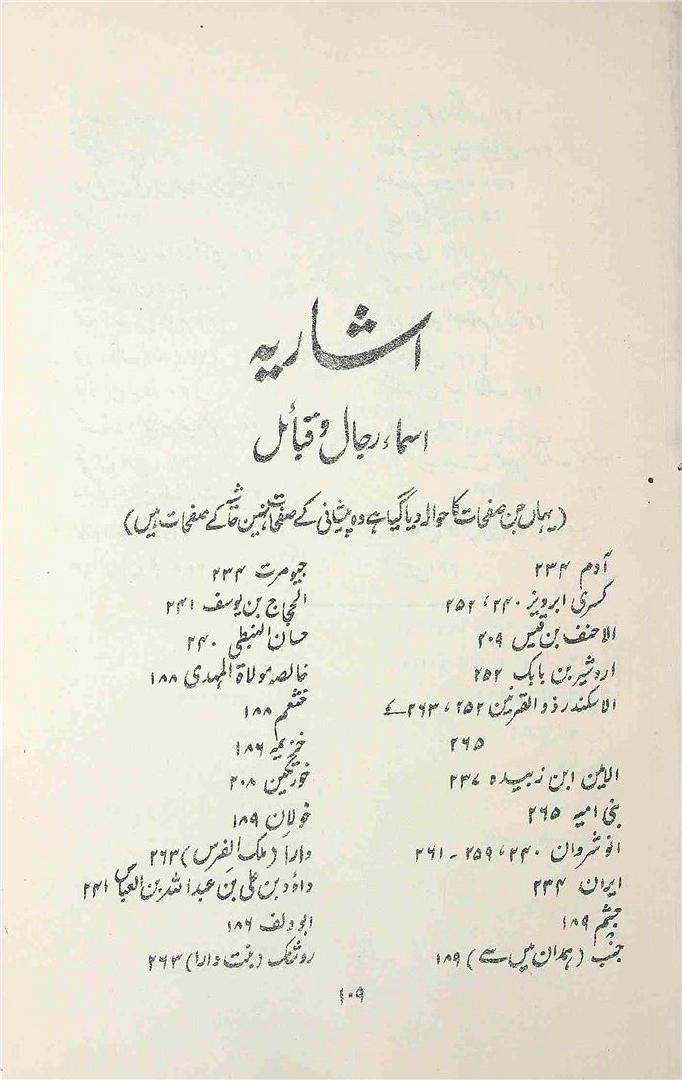 اشاریہ
اسماء رجال و قبائل
(یہاں جن صفحات کا حوالہ دیا گیا ہے وہ پیشانی کے صفحات نہین حاشیہ کے صفحات ہیں)
آدم ۲۳۴
کسری ابرویز ۲۴۰، ۲۵۲
الاحنف بن قیس ۲۰۹
اردشیر بن بابک ۲۵۲
الاسکندر ذوالقرنین ۲۵۲، ۲۶۳ سے
۲۶۵
الامین ابن زبیدہ ۲۳۷
بنی امیہ ۲۶۵
انوشروان ۲۴۰، ۲۵۹ - ۲۶۱
ایران ۲۳۴
جشم ۱۸۹
جنب (ہمدان میں سے) ۱۸۹
جیومرت ۲۳۴
الحجاج بن یوسف ۲۴۱
حسان النبطی ۲۴۰
خالصہ مولاۃ المہدی ۱۸۸
خثعم ۱۸۸
خزیمہ ۱۸۶
خورتکین ۲۰۸
خولان ۱۸۹
دارا (ملک الفرس) ۲۶۳
داؤد بن علی بن عبداللہ بن العباس ۲۴۱
ابودلف ۱۸۶
روشنک (بنت دارا) ۲۶۳
۱۰۹